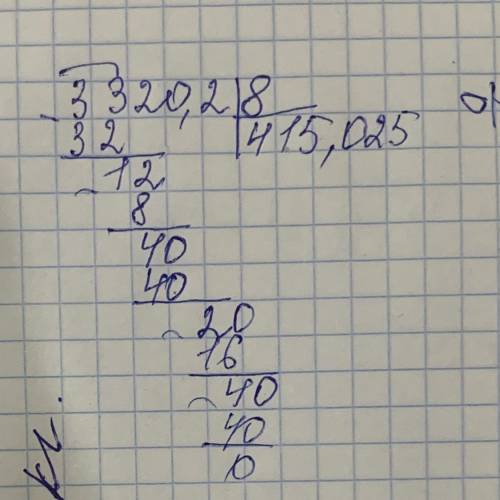 - 3320,2 | 8
32 | 415,025
- 12
8
40
40
- 20
16
- 40
40
0
кг.